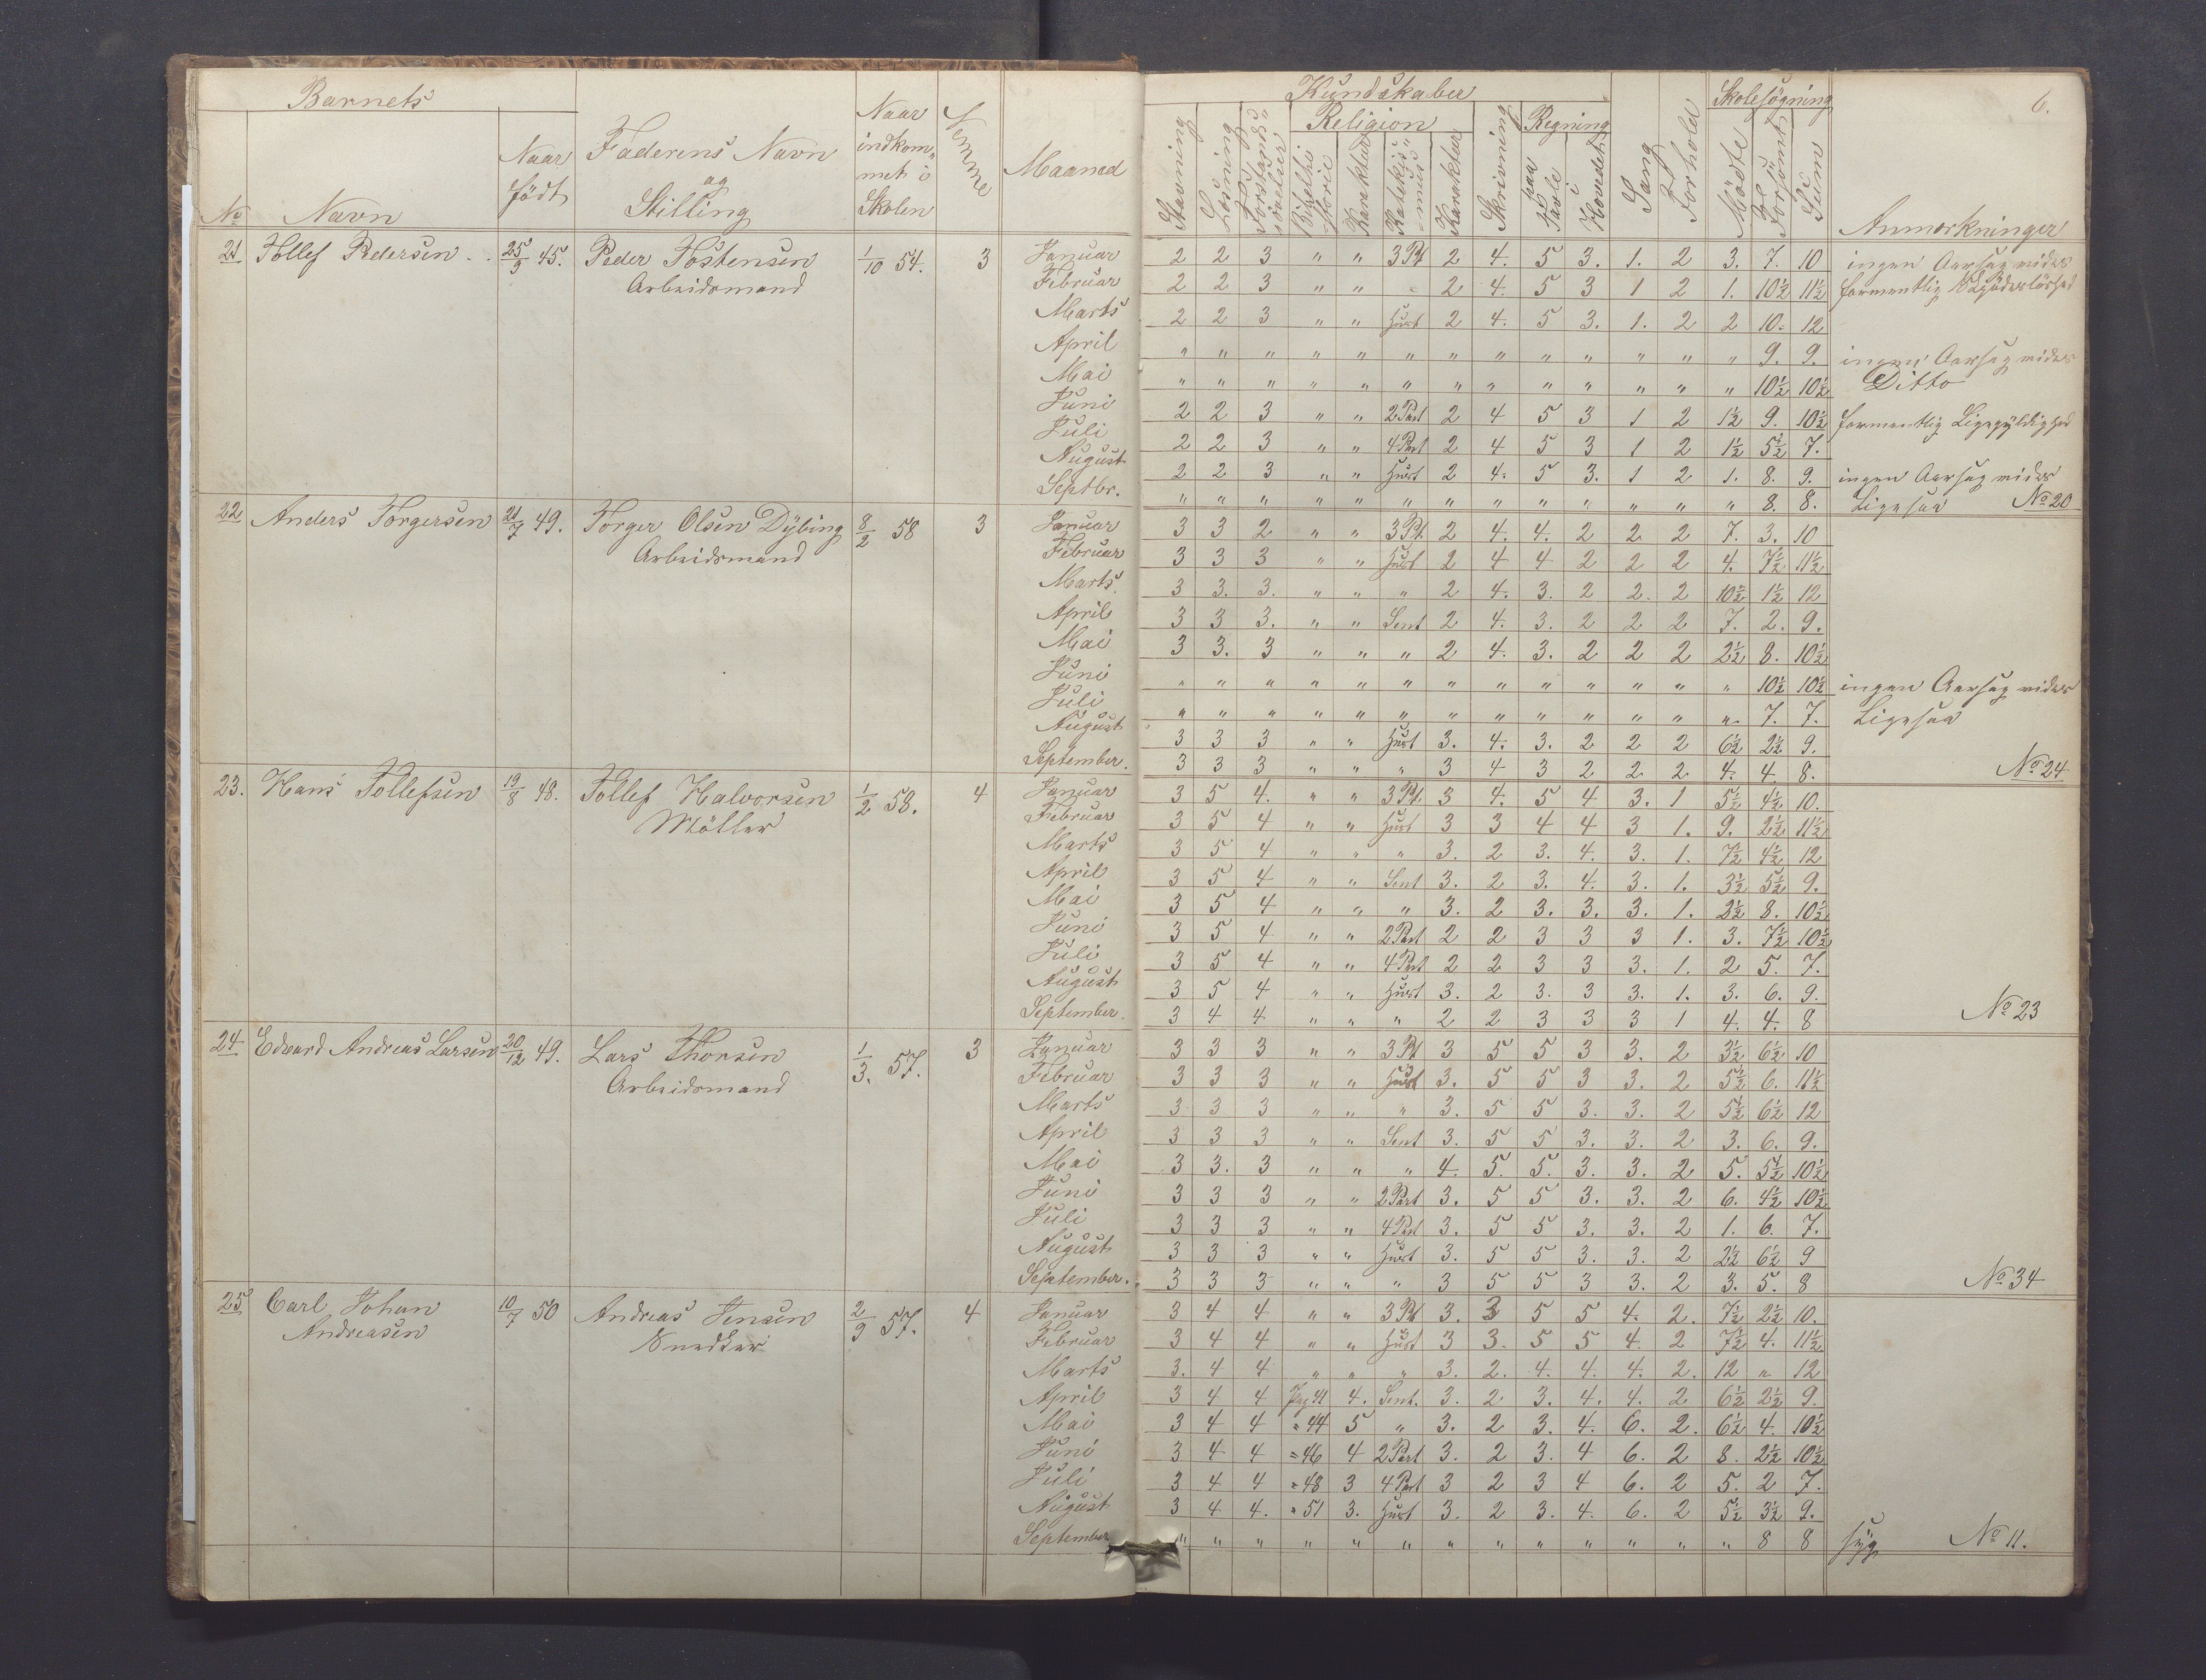 Barnets
No Navn Naar födt Faderens Navn og Stilling Naar indkom„met i Skolen Nemme Maaned
Kundskaber Skolesögning 6.
Religion Regning
Stavning Læsning Forstands„övelser Bibelhistorie Karakter Katekis„mus Karakter Skrivning paa Tavle i Hovedet Sang Forhold Mödte Forsömt Sum Anmærkninger
21 Tollef Pedersen 25/9 45. Peder Tostensen Arbeidsmand 1/10 54. 3
Januar 2 2 3 „ „ 3 Pt 2 4. 5 3. 1. 2 3. 7. 10 ingen Aarsag vides
Februar 2 2 3 „ „ „ 2 4. 5 3 1 2 1. 10½ 11½ formentlig Klæderlöshed
Marts 2 2 3 „ „ Hust 2 4. 5 3. 1. 2 2 10. 12
April „ „ „ „ „ „ „ „ „ „ „ „ „ 9. 9. ingen Aarsag vides
Mai „ „ „ „ „ „ „ „ „ „ „ „ „ 10½ 10½ Ditto
Juni 2 2 3 „ „ 2 Part 2 4 5 3 1 2 1½ 9. 10½ formentlig Ligegyldighed
Juli 2 2 3 „ „ 4 Part 2 4 5 3 1 2 1½ 5½ 7.
August 2 2 3 „ „ Hust 2 4. 5 3. 1 2 1. 8. 9. ingen Aarsag vides
Septbr. „ „ „ „ „ „ „ „ „ „ „ „ „ 8. 8. Ligesaa No 20
22 Anders Torgersen 21/7 49. Torger Olsen Dybing Arbeidsmand 8/2 58 3
Januar 3 3 2 „ „ 3 Pt. 2 4. 4. 2 2 2 7. 3. 10
Februar 3 3 3 „ „ Hust 2 4 4 2 2 2 4. 7½ 11½
Marts. 3 3. 3. „ „ „ 2 4. 3. 2 2. 2 10½ 1½ 12
April 3 3 3. „ „ Sent 2 4. 3. 2 2 2 7. 2. 9.
Mai 3 3. 3 „ „ „ 2 4. 3. 2 2 2 2½ 8. 10½
Juni „ „ „ „ „ „ „ „ „ „ „ „ „ 10½ 10½ ingen Aarsag vides
Juli „ „ „ „ „ „ „ „ „ „ „ „ „ 7. 7. Ligesaa
August 3 3 3 „ „ Hust 3. 4. 3. 2 2 2 6½ 2½ 9.
September. 3 3 3 „ „ „ 3 4 3 2 2 2 4. 4. 8. No 24
23. Hans Tollefsen 19/8 48. Tollef Halvorsen Möller 1/2 58. 4
Januar 3 5 4. „ „ 3 Pt. 3 4. 5 4 3. 1 5½ 4½ 10.
Februar 3 5 4 „ „ Hust 3 3 4 4 3 1. 9. 2½ 11½
Marts 3 5 4 „ „ „ 3. 2 3. 4. 3. 1. 7½ 4½ 12
April 3 5 4 „ „ Sent 3. 2 3. 4. 3. 1. 3½ 5½ 9.
Mai 3 5 4 „ „ „ 3. 2 3. 3. 3. 1. 2½ 8. 10½
Juni 3 5 4 „ „ 2 Part 2 2 3 3 3 1. 3. 7½ 10½
Juli 3 5 4 „ „ 4 Part 2 2 3 3 3. 1. 2 5. 7.
August 3 5 4 „ „ Hust 3. 2 3. 3 3. 1. 3. 6. 9.
September. 3 4 4 „ „ „ 2 2 3 3 3 1 4. 4. 8 No 23
24 Edvard Andreas Larsen 20/12 49. Lars Thorsen Arbeidsmand 1/3. 57. 3
Januar 3 3 3 „ „ 3 Pt 3 5 5 3 3. 2 3½ 6½ 10
Februar 3 3 3 „ „ Hust 3. 5 5 3 3. 2 5½ 6. 11½
Marts 3 3 3 „ „ „ 3. 5 5 3. 3. 2 5½ 6½ 12
April 3 3 3 „ „ Sent 3. 5 5 3. 3. 2 3. 6. 9.
Mai 3 3. 3 „ „ „ 4. 5. 5. 3. 3. 2 5. 5½ 10½
Juni 3 3 3 „ „ 2 Part 3. 5 5 3. 3. 2 6. 4½ 10½
Juli 3 3 3 „ „ 4 Part 3. 5 5 3. 3. 2 1. 6. 7.
August 3 3 3 „ „ Hust 3. 5 5 3. 3. 2 2½ 6½ 9
September. 3 3 3 „ „ „ 3 5 5 3 3. 2 3. 5. 8 No 34
25 Carl Johan Andreasen 10/7 50 Andreas Jensen Snedker 2/9 57. 4
Januar 3 4 4 „ „ 3 Pt 3. 3 5 5 4. 2. 7½ 2½ 10.
Februar 3 4 4 „ „ Hust 3 3. 5 5 4. 2 7½ 4. 11½
Marts 3. 4 4 „ „ „ 3. 2. 4. 4. 4. 2. 12 „ 12
April 3 4 4 Pag 41 4. Sent. 3. 2 3. 4. 4. 2 6½ 2½ 9.
Mai 3 4 4 „ 44 5 „ 3. 2 3. 4. 6. 2. 6½ 4. 10½
Juni 3 4 4 „ 46 4 2 Part 3. 2 3. 4 6. 2 8. 2½ 10½
Juli 3 4 4 „ 48 3 4 Part 3 2 3 4 6. 2 5. 2 7.
August 3 4 4. „ 51 3. Hust 3. 2 3. 4. 6. 2 5½ 3½ 9.
September „ „ „ „ „ „ „ „ „ „ „ „ „ 8 8 syg No 11.